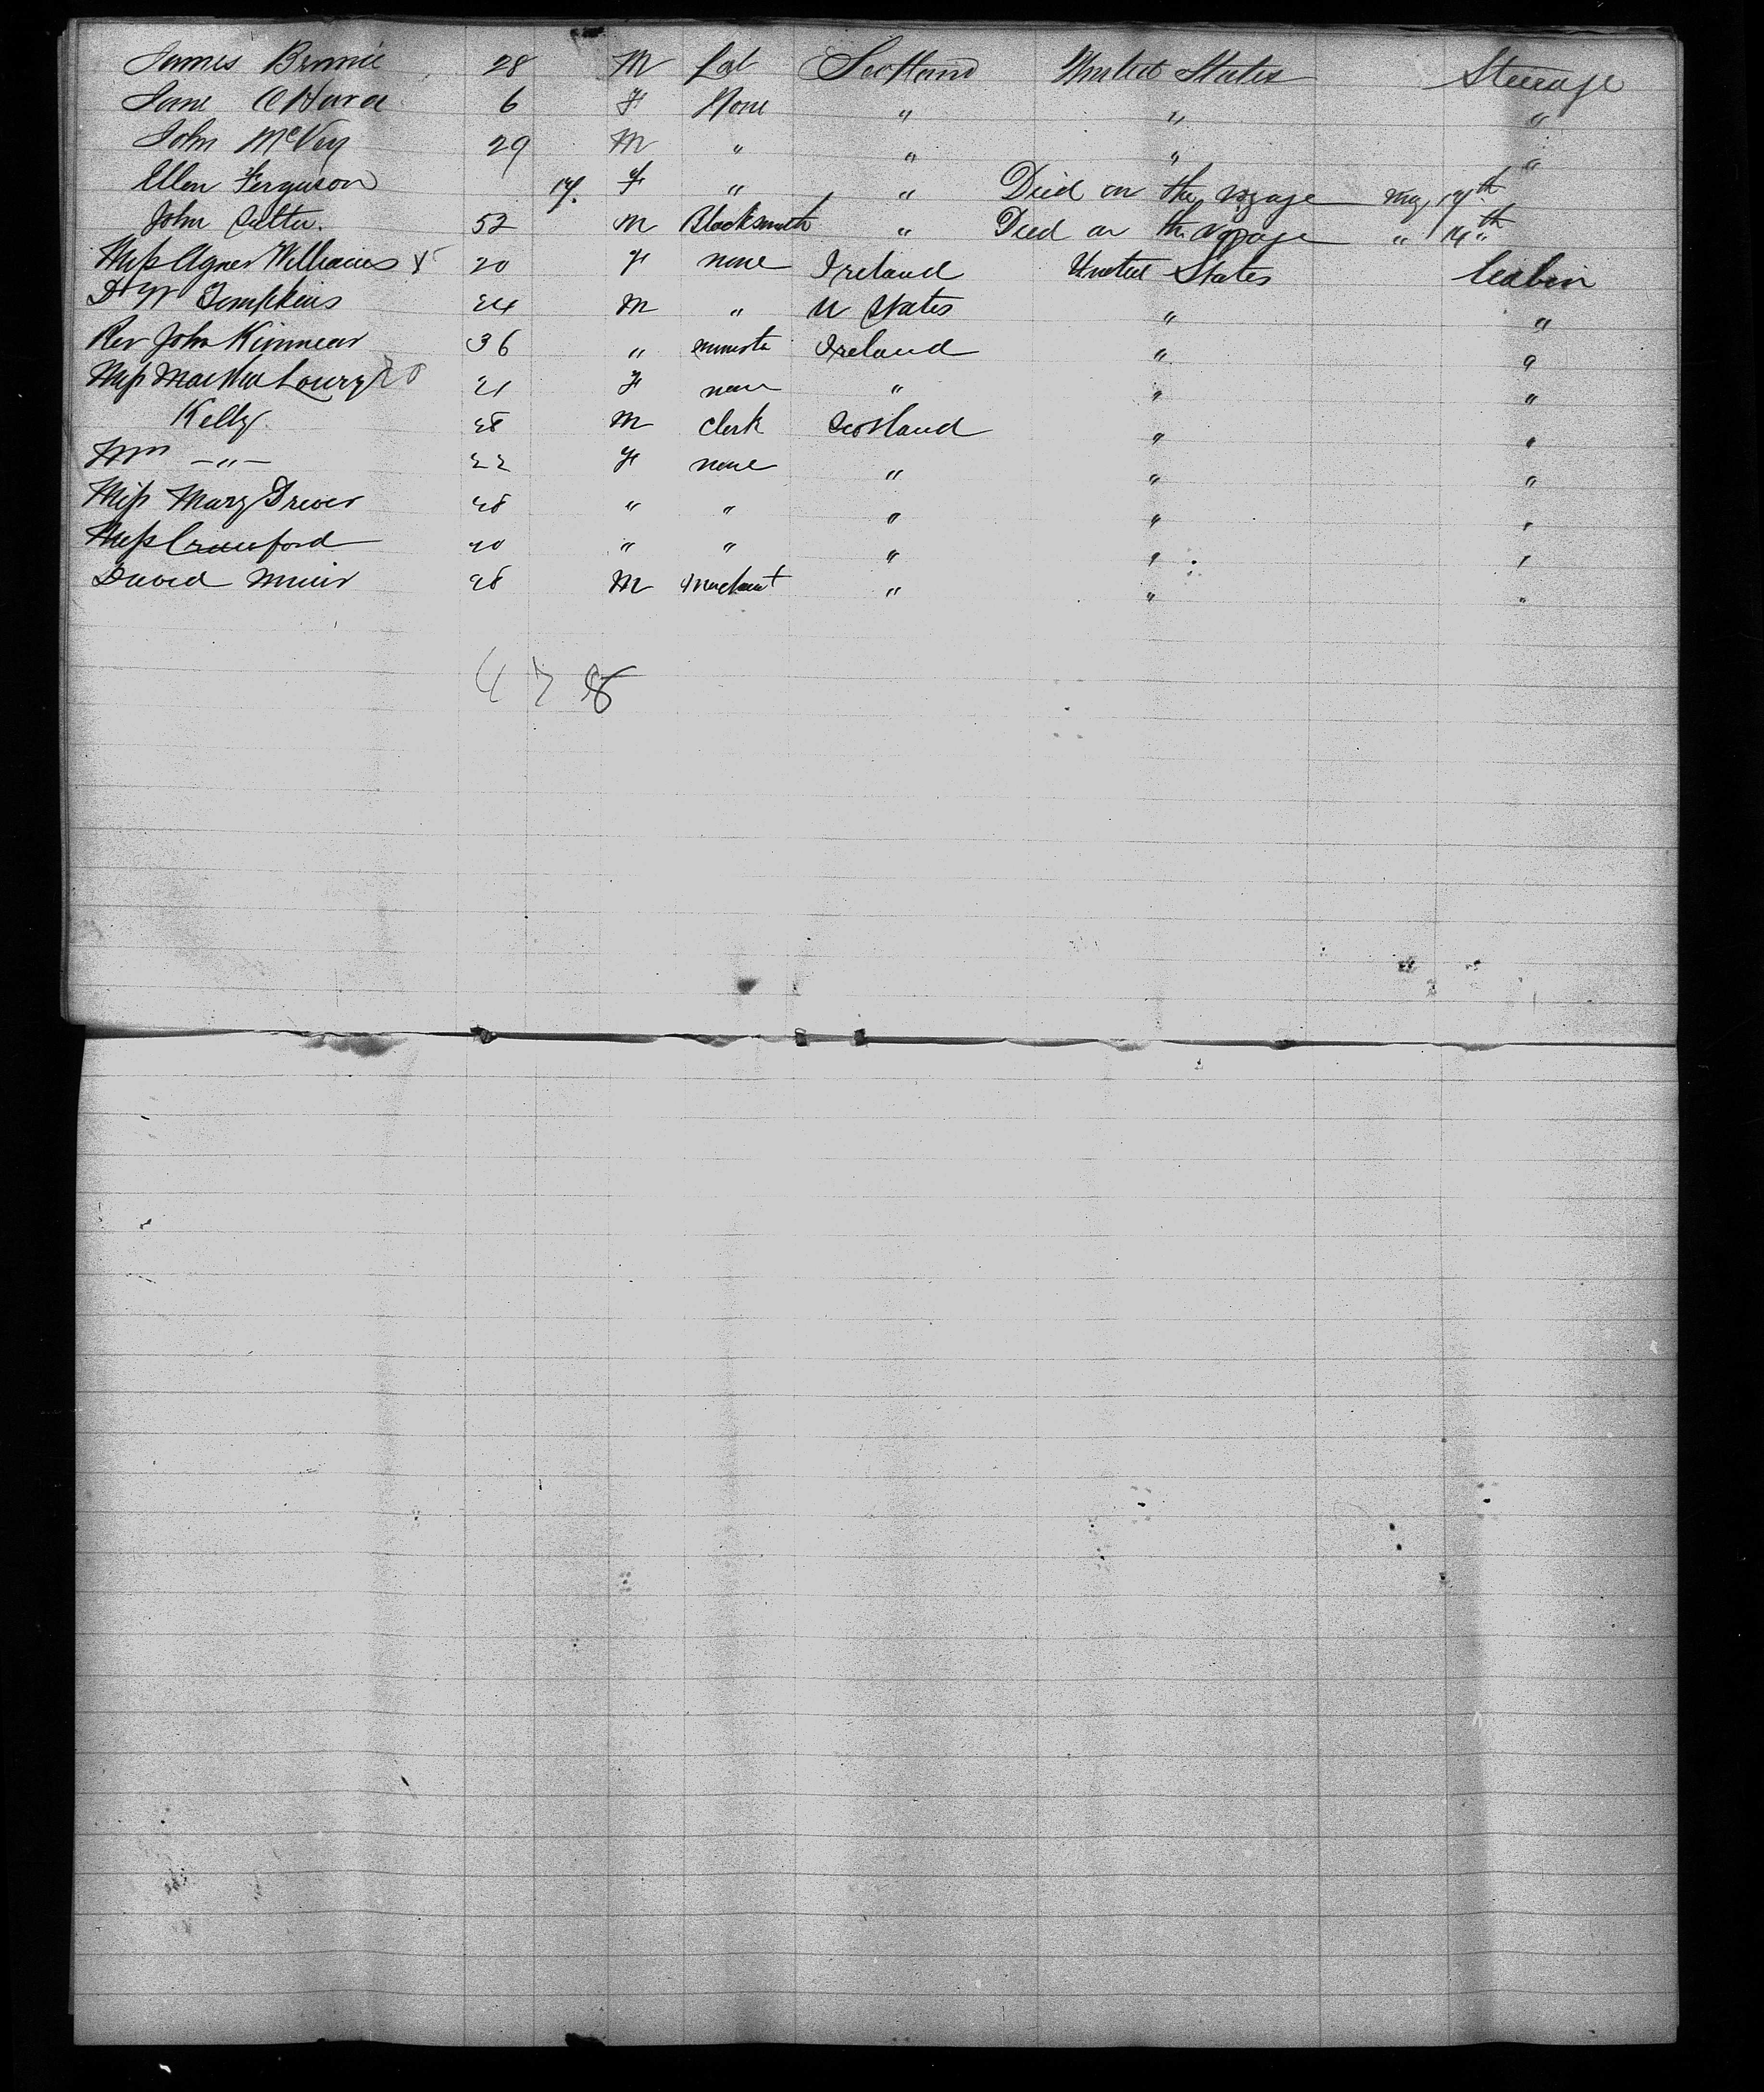 James Brownie 28 M Lab Scotland United States Steerage
Jane O'Hara 6 F None " " "
John McVey 29 M " " " "
Ellen Ferguson 14. F " " Died on the voyage May 14th
John 52 M Blacksmith " Died on the voyage " 14th
Miss Agnes Williams 20 F none Ireland United States Cabin
Dr W Tompkins 24 M " U States " "
Rev John Kinnear 36 " Ireland " "
Miss Martha Loury 20 21 F none " " "
Kelly 28 M clerk Scotland " "
Mrs —"— 22 F none " " "
Miss Mary " " " " "
Miss Crawford " " " " "
David Muir M Merchant " " "
478